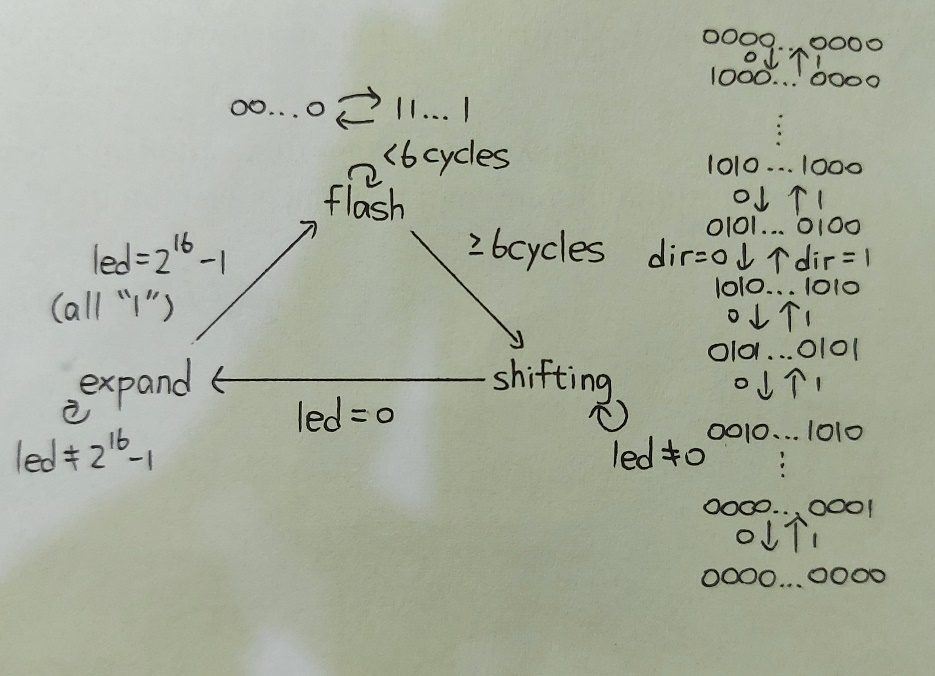 00...0 ⇄ 11...1
<6cycles
flash
led=2^16-1
(all "1")
≥6cycles
expand
led=0
shifting
led≠2^16-1
led≠0
0000...0000
0↓ ↑1
1000...0000
⋮
1010...1000
0↓ ↑1
0101...0100
dir=0↓ ↑dir=1
1010...1010
0↓ ↑1
0101...0101
0↓ ↑1
0010...1010
⋮
0000...0001
0↓ ↑1
0000...0000